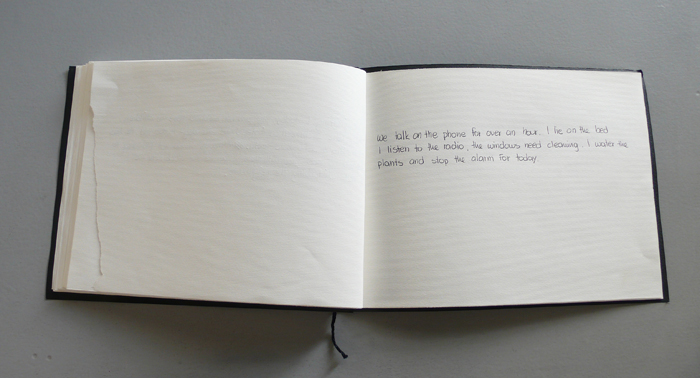 we talk on the phone for over an hour. I lie on the bed
I listen to the radio, the windows need cleaning. I water the
plants and stop the alarm for today